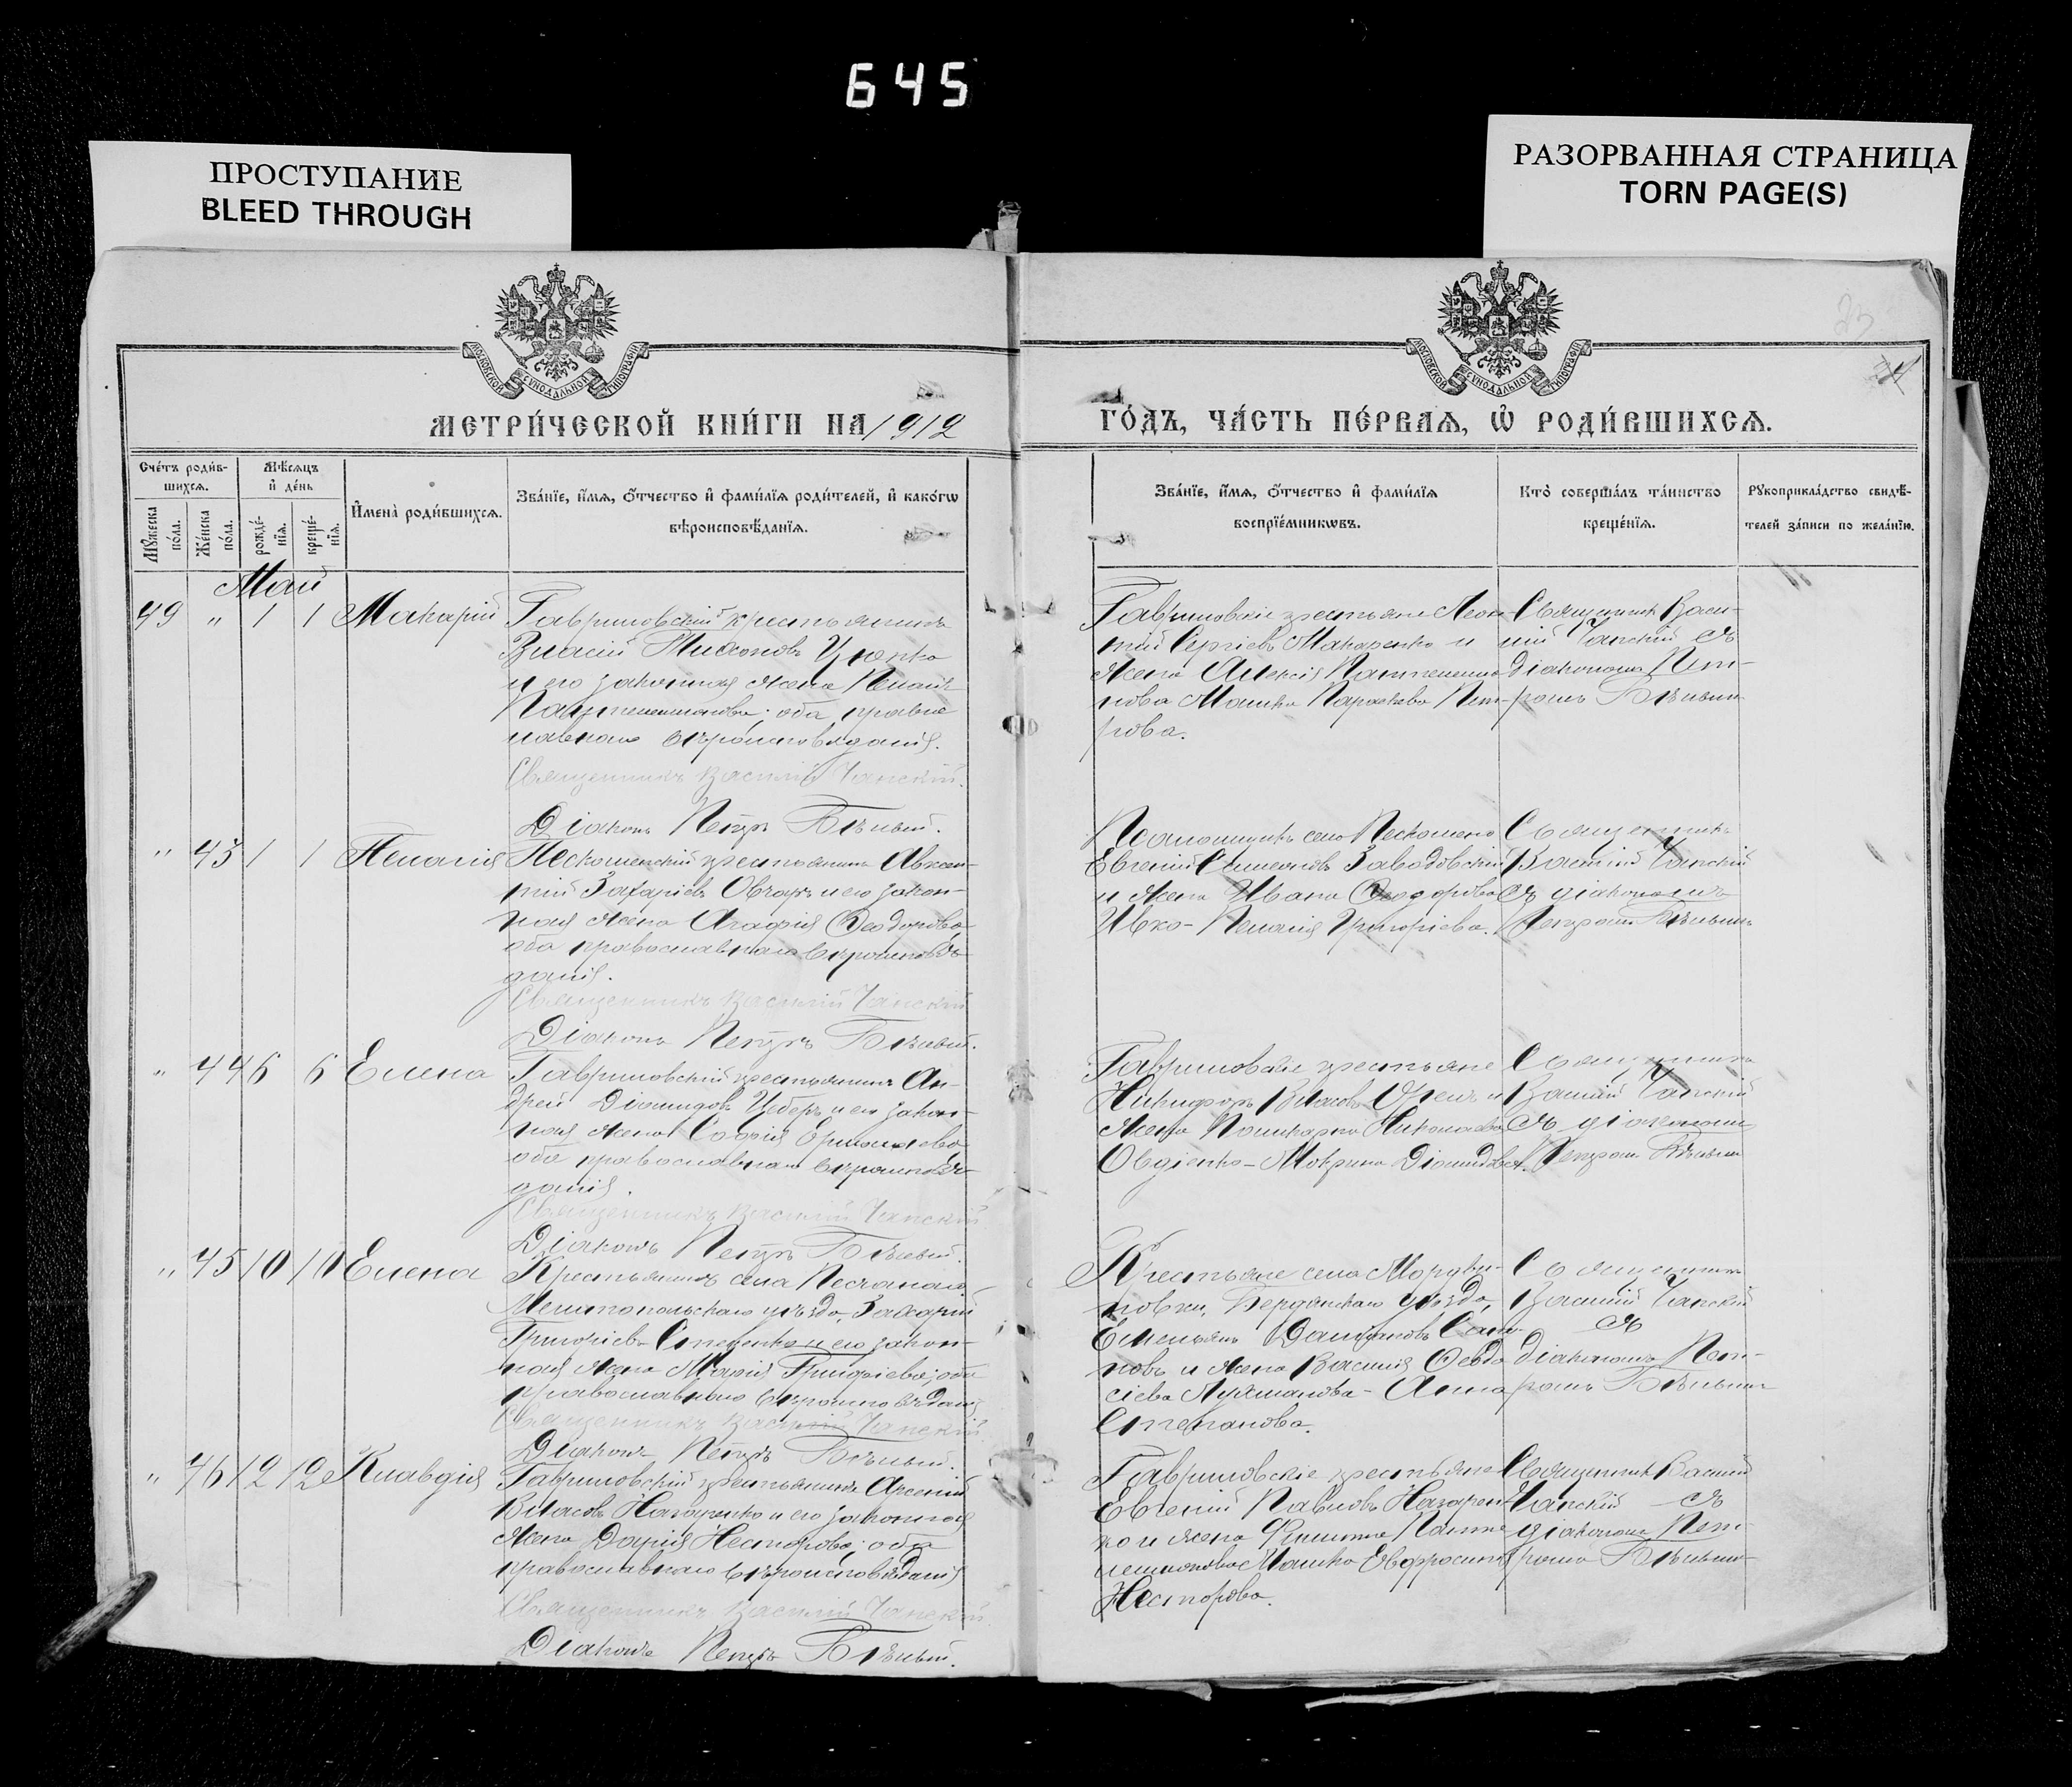 645
ПРОСТУПАНИЕ
BLEED THROUGH
РАЗОРВАННАЯ СТРАНИЦА
TORN PAGE(S)
МОСКОВСКОЙ СѴНОДАЛЬНОЙ ТИПОГРАФІИ
МОСКОВСКОЙ СѴНОДАЛЬНОЙ ТИПОГРАФІИ
МЕТРИ́ЧЕСКОЙ КНИ́ГИ НА 1912
ГО́ДЪ, ЧА́СТЬ ПЕ́РВАѦ, Ѽ РОДИ́ВШИХСѦ.
Сче́тъ роди́в-
шихсѧ.
Мꙋжеска по́ла.
Же́нска по́ла.
Мѣ́сѧцъ
и҆ де́нь
рожде́-
нїѧ.
креще́-
нїѧ.
И҆мена̀ роди́вшихсѧ.
Зва́нїе, и҆́мѧ, ѻ҆́тчество и҆ фами́лїѧ роди́телей, и҆ како́гѡ
вѣроисповѣ́данїѧ.
Зва́нїе, и҆́мѧ, ѻ҆́тчество и҆ фами́лїѧ
воспрїе́мникѡвъ.
Кто̀ соверша́лъ та́инство
креще́нїѧ.
Рꙋкоприкла́дство свидѣ́-
телей за́писи по жела́нїю.
Май
49 " 1 1 Макарій
Гавриловскій крестьянинъ
Власій
и его законная жена
оба право
славнаго вѣроисповѣданія.
Священникъ Василій Чапскій.
Діаконъ Петръ Бѣлый.
Гавриловскіе крестьяне Леон-
тій Сергіевъ Макаренко и
жена Алексія
нова Машко Параскева Пет-
рова.
Священникъ Васи-
лій Чапскій съ
діакономъ Пет-
ромъ Бѣлымъ
" 43 1 1 Пелагія
Пескошенскій крестьянинъ Авксен-
тій Захаріевъ Овчаръ и его закон-
ная жена Агафія Ѳеодорова
оба православнаго вѣроисповѣ-
данія.
Священникъ Василій Чапскій
Діаконъ Петръ Бѣлый.
Псаломщикъ села
Евгеній Симеоновъ Заводовскій
и жена Ивана Ѳеодорова
Ивко - Пелагія Григоріева.
Священникъ
Василій Чапскій
съ діакономъ
Петромъ Бѣлымъ
" 44 6 6 Елена
Гавриловскій крестьянинъ Ан-
дрей Діомидовъ Цеберъ и его закон-
ная жена Софія Ермолаева
оба православнаго вѣроисповѣ-
данія.
Священникъ Василій Чапскій
Діаконъ Петръ Бѣлый.
Гавриловскіе крестьяне
Никифоръ Власовъ и
жена Николаева
Овдіенко - Мокрина Діомидова.
Священникъ
Василій Чапскій
съ діакономъ
Петромъ Бѣлымъ
" 45 10 10 Елена
Крестьянинъ села Песчанаго
Мелитопольскаго уѣзда, Захарій
Григоріевъ Стеценко и его закон-
ная жена Марія Григоріева; оба
православнаго вѣроисповѣданія
Священникъ Василій Чапскій.
Діаконъ Петръ Бѣлый.
Крестьяне села Мордви-
новки, Бердянскаго уѣзда,
Емельянъ
новъ и жена Василія Ѳеодо
сіева Лукманова - Анна
Степанова.
Священникъ
Василій Чапскій
съ
діакономъ Пет-
ромъ Бѣлымъ
" 46 12 12 Клавдія
Гавриловскій крестьянинъ Арсеній
Власовъ Назаренко и его законная
жена Дарія Несторова; оба
православнаго вѣроисповѣданія
Священникъ Василій Чапскій
Діаконъ Петръ Бѣлый.
Гавриловскіе крестьяне
Евгеній Павловъ Назарен-
ко и жена Филиппа Панте
леимонова Машко Евфросинія
Несторова.
Священникъ Василій
Чапскій съ
діакономъ Пет-
ромъ Бѣлымъ